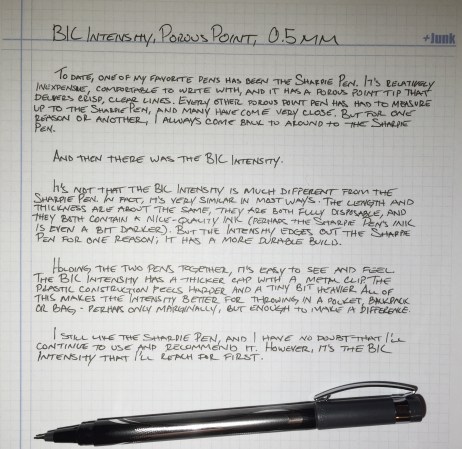 BIC INTENSITY, POROUS POINT, 0.5 MM
+Junk
TO DATE, ONE OF MY FAVORITE PENS HAS BEEN THE SHARPIE PEN. IT'S RELATIVELY
INEXPENSIVE, COMFORTABLE TO WRITE WITH, AND IT HAS A POROUS POINT TIP THAT
DELIVERS CRISP, CLEAR LINES. EVERY OTHER POROUS POINT PEN HAS HAD TO MEASURE
UP TO THE SHARPIE PEN, AND MANY HAVE COME VERY CLOSE. BUT FOR ONE
REASON OR ANOTHER, I ALWAYS COME BACK TO AROUND TO THE SHARPIE
PEN.
AND THEN THERE WAS THE BIC INTENSITY.
IT'S NOT THAT THE BIC INTENSITY IS MUCH DIFFERENT FROM THE
SHARPIE PEN. IN FACT, IT'S VERY SIMILAR IN MOST WAYS. THE LENGTH AND
THICKNESS ARE ABOUT THE SAME, THEY ARE BOTH FULLY DISPOSABLE, AND
THEY BOTH CONTAIN A NICE-QUALITY INK (PERHAPS THE SHARPIE PEN'S INK
IS EVEN A BIT DARKER). BUT THE INTENSITY EDGES OUT THE SHARPIE
PEN FOR ONE REASON; IT HAS A MORE DURABLE BUILD.
HOLDING THE TWO PENS TOGETHER, IT'S EASY TO SEE AND FEEL
THE BIC INTENSITY HAS A THICKER CAP WITH A METAL CLIP. THE
PLASTIC CONSTRUCTION FEELS HARDER AND A TINY BIT HEAVIER. ALL OF
THIS MAKES THE INTENSITY BETTER FOR THROWING IN A POCKET, BACKPACK
OR BAG - PERHAPS ONLY MARGINALLY, BUT ENOUGH TO MAKE A DIFFERENCE.
I STILL LIKE THE SHARPIE PEN, AND I HAVE NO DOUBT THAT I'LL
CONTINUE TO USE AND RECOMMEND IT. HOWEVER, IT'S THE BIC
INTENSITY THAT I'LL REACH FOR FIRST.